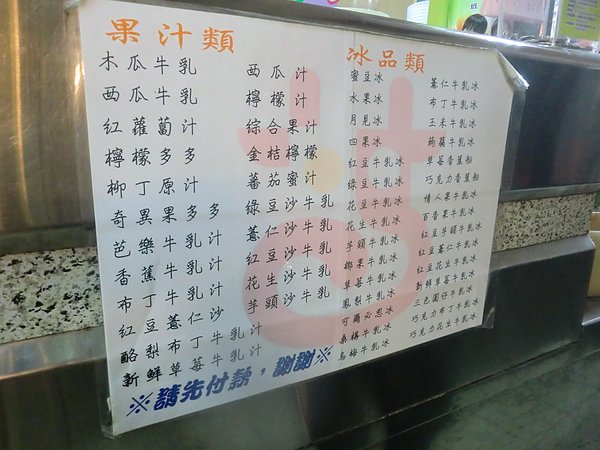 果汁類
木瓜牛乳
西瓜牛乳
紅蘿蔔汁
檸檬多多
柳丁原汁
奇異果多多
芭樂牛乳汁
香蕉牛乳汁
布丁牛乳汁
紅豆薏仁沙
酪梨布丁牛乳汁
新鮮草莓牛乳汁
西瓜汁
檸檬汁
綜合果汁
金桔檸檬
蕃茄蜜汁
綠豆沙牛乳
薏仁沙牛乳
紅豆沙牛乳
花生沙牛乳
芋頭沙牛乳
冰品類
蜜豆冰
水果冰
月見冰
四果冰
紅豆牛乳冰
綠豆牛乳冰
花豆牛乳冰
花生牛乳冰
芋頭牛乳冰
椰果牛乳冰
草莓牛乳冰
鳳梨牛乳冰
可爾必思冰
桑椹牛乳冰
烏梅牛乳冰
薏仁牛乳冰
布丁牛乳冰
玉米牛乳冰
蒟蒻牛乳冰
草莓香蕉船
巧克力香蕉船
情人果牛乳冰
百香果牛乳冰
紅豆芋頭牛乳冰
紅豆薏仁牛乳冰
紅豆花生牛乳冰
新鮮草莓牛乳冰
三色圓仔牛乳冰
巧克力布丁牛乳冰
巧克力花生牛乳冰
※請先付款，謝謝※